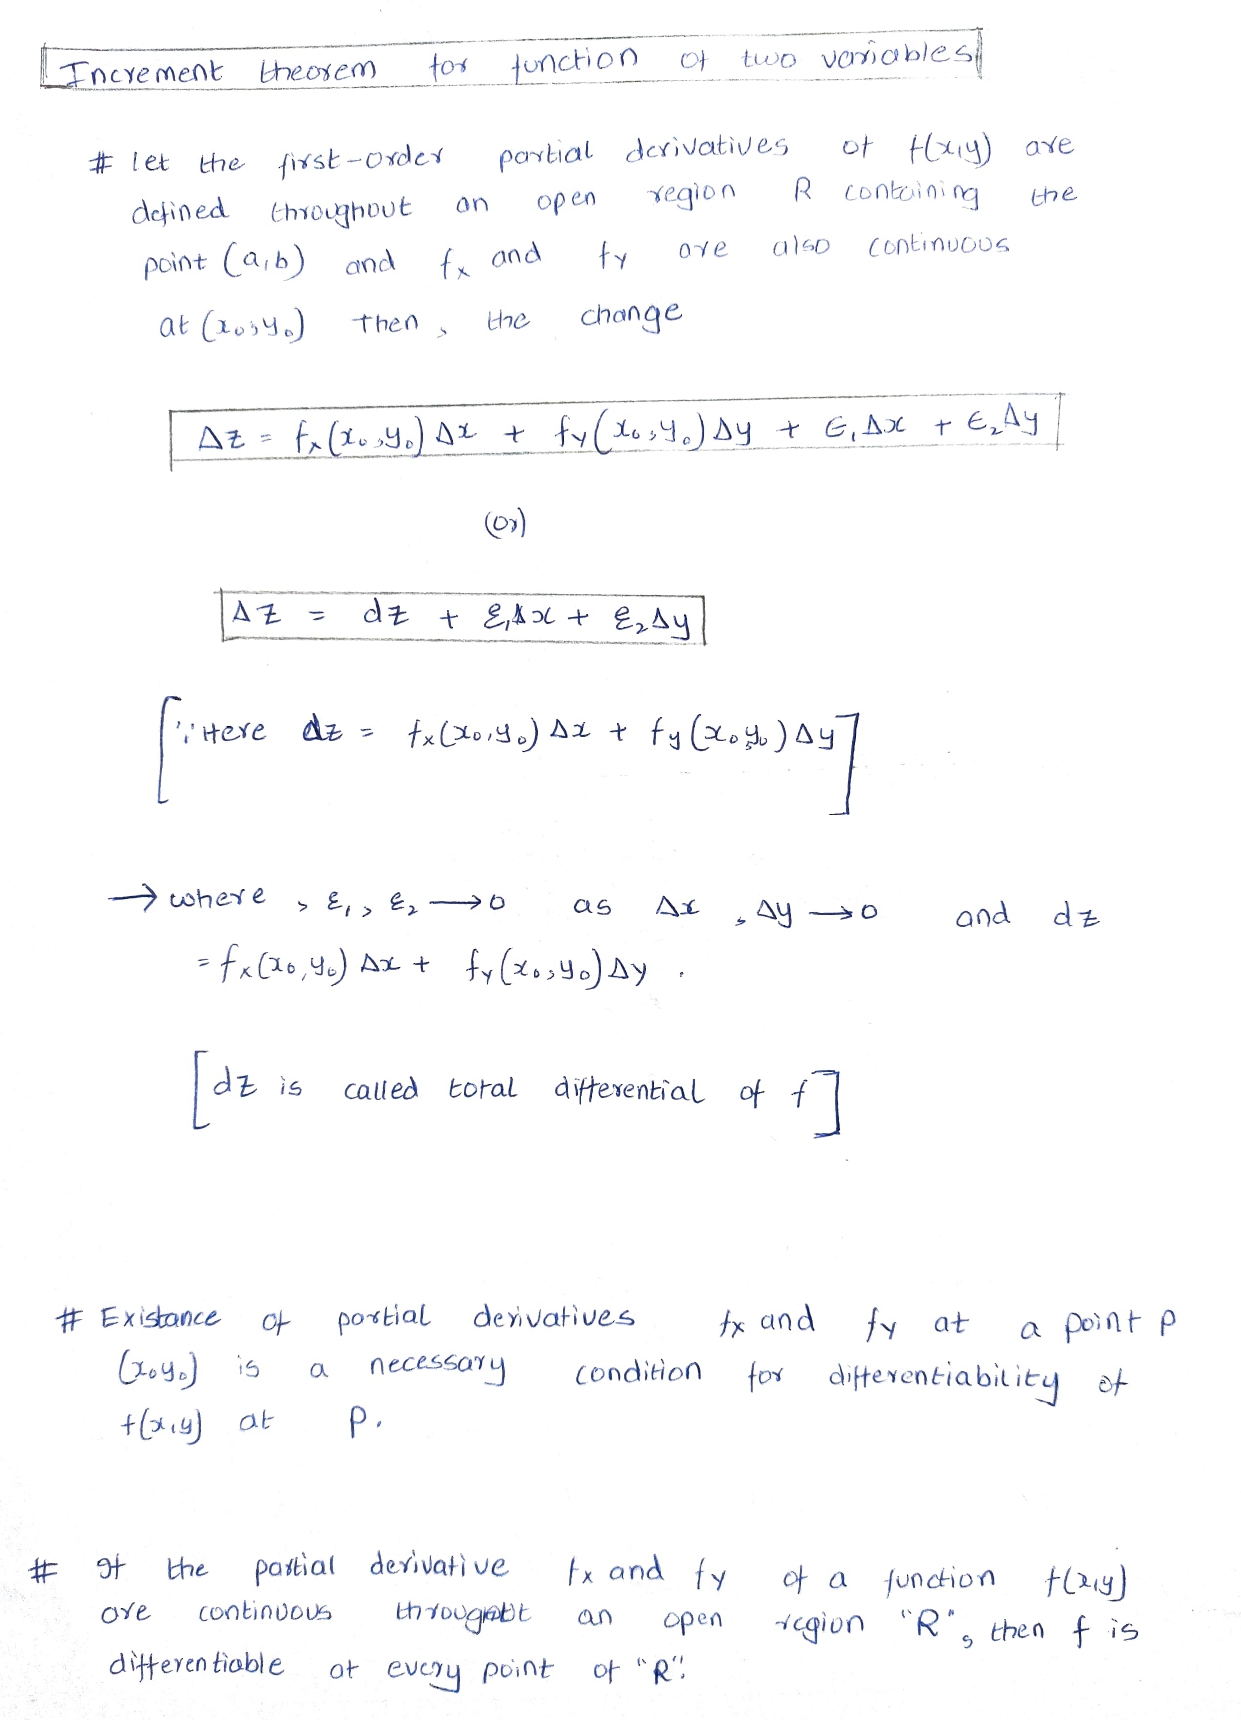 Increment theorem for function of two variables
# let the first-order partial derivatives of f(x,y) are
defined throughout an open region R containing the
point (a,b) and fx and fy are also continuous
at (x₀,y₀) then, the change
Δz = fx(x₀,y₀)Δx + fy(x₀,y₀)Δy + ∈₁Δx + ∈₂Δy
(or)
Δz = dz + ε₁Δx + ε₂Δy
[∵ Here dz = fx(x₀,y₀)Δx + fy(x₀,y₀)Δy]
→ where, ε₁, ε₂ → 0 as Δx, Δy → 0 and dz
= fx(x₀,y₀)Δx + fy(x₀,y₀)Δy.
[dz is called total differential of f]
# Existance of partial derivatives fx and fy at a point P
(x₀y₀) is a necessary condition for differentiability of
f(x,y) at P.
# If the partial derivative fx and fy of a function f(x,y)
are continuous an open region "R", then f is
differentiable at every point of "R".